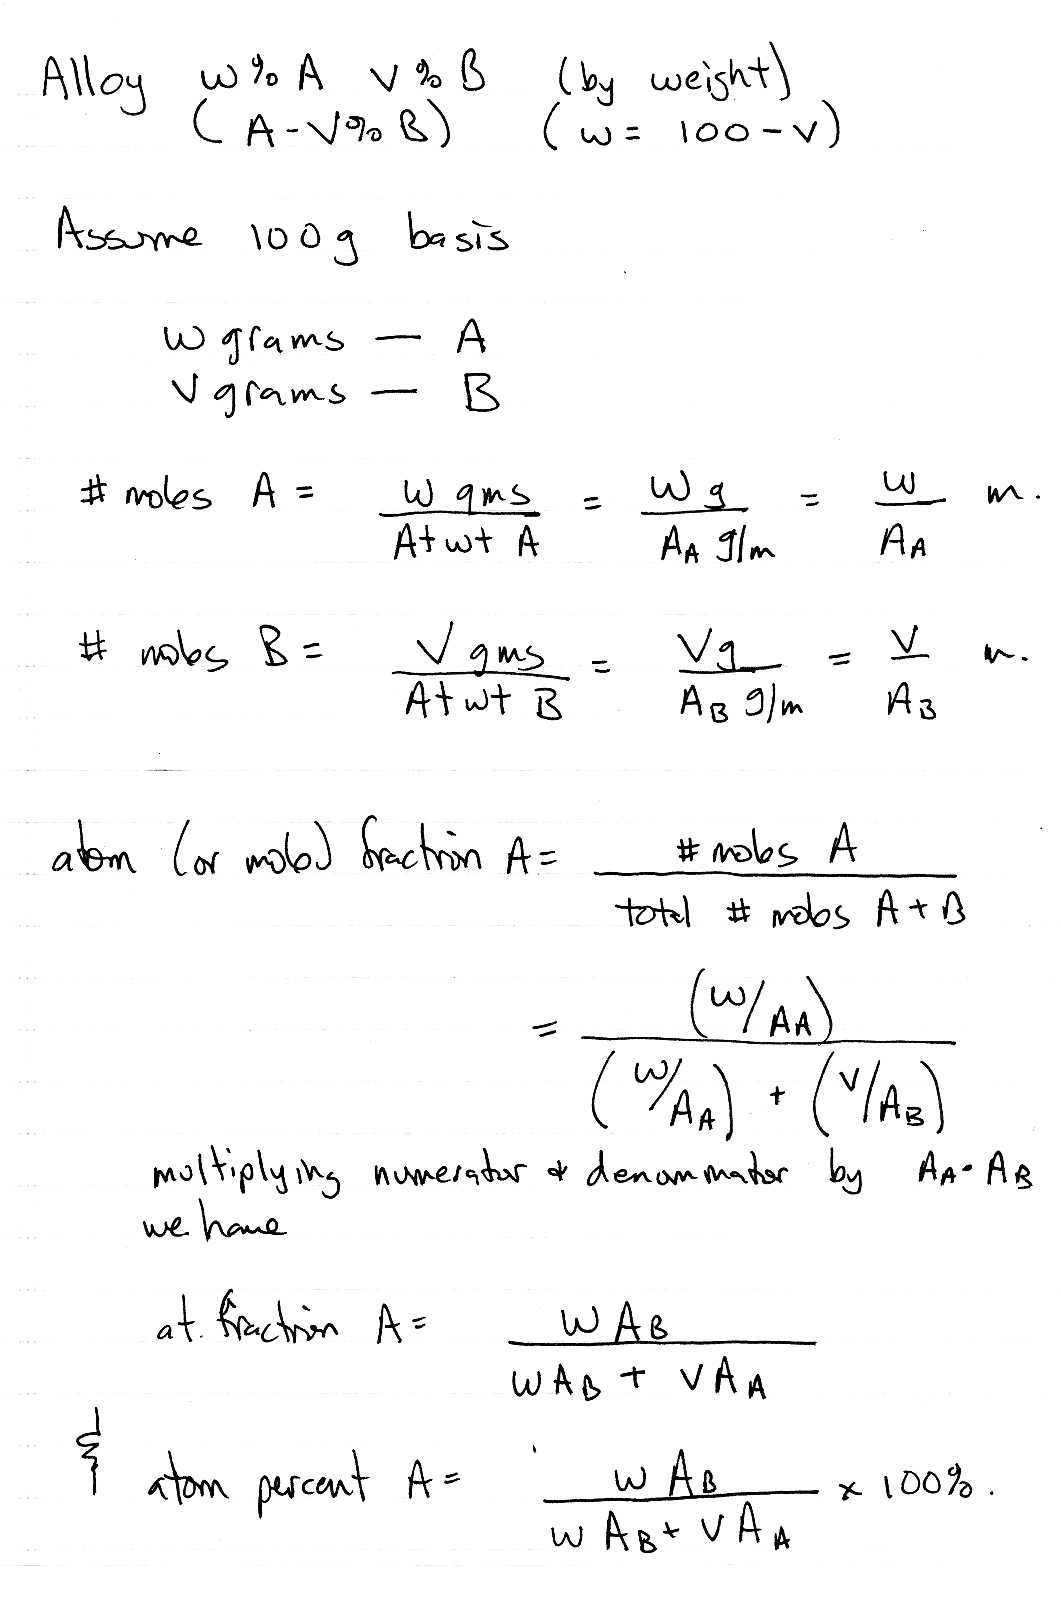 Alloy w% A v% B (by weight)
(A-V% B) (w = 100-v)
Assume 100g basis
w grams — A
v grams — B
# moles A = W gms / At wt A = W g / A_A g/m = W / A_A m.
# moles B = V gms / At wt B = V g / A_B g/m = V / A_B m.
atom (or mole) fraction A = # moles A / total # moles A + B
= (W/A_A) / (W/A_A) + (V/A_B)
multiplying numerator & denominator by A_A · A_B
we have
at. fraction A = W A_B / W A_B + V A_A
& atom percent A = W A_B / W A_B + V A_A x 100%.